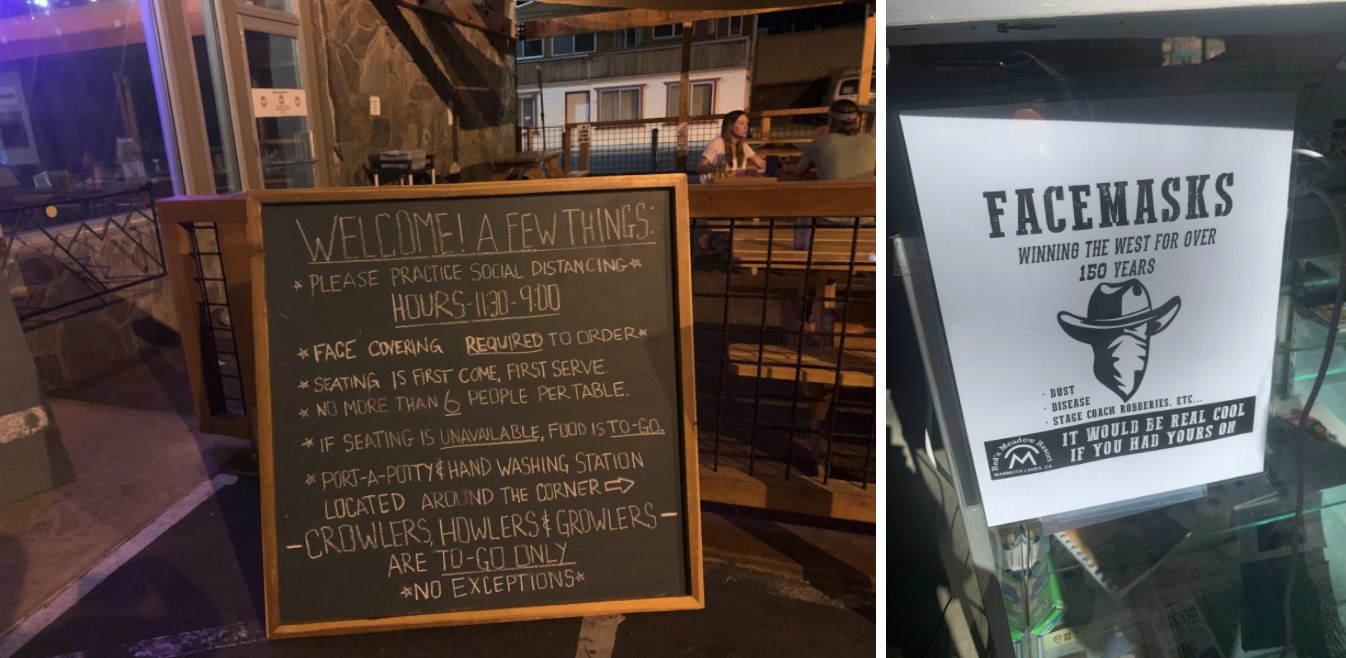 WELCOME! A FEW THINGS:
* PLEASE PRACTICE SOCIAL DISTANCING *
HOURS-11:30-9:00
* FACE COVERING REQUIRED TO ORDER *
* SEATING IS FIRST COME, FIRST SERVE.
* NO MORE THAN 6 PEOPLE PER TABLE.
* IF SEATING IS UNAVAILABLE, FOOD IS TO-GO.
* PORT-A-POTTY & HAND WASHING STATION
LOCATED AROUND THE CORNER ⇨
- CROWLERS, HOWLERS & GROWLERS -
ARE TO-GO ONLY
* NO EXCEPTIONS *
FACEMASKS
WINNING THE WEST FOR OVER
150 YEARS
· DUST
· DISEASE
· STAGE COACH ROBBERIES, ETC...
IT WOULD BE REAL COOL
IF YOU HAD YOURS ON
Red's Meadow Resort
MAMMOTH LAKES, CA